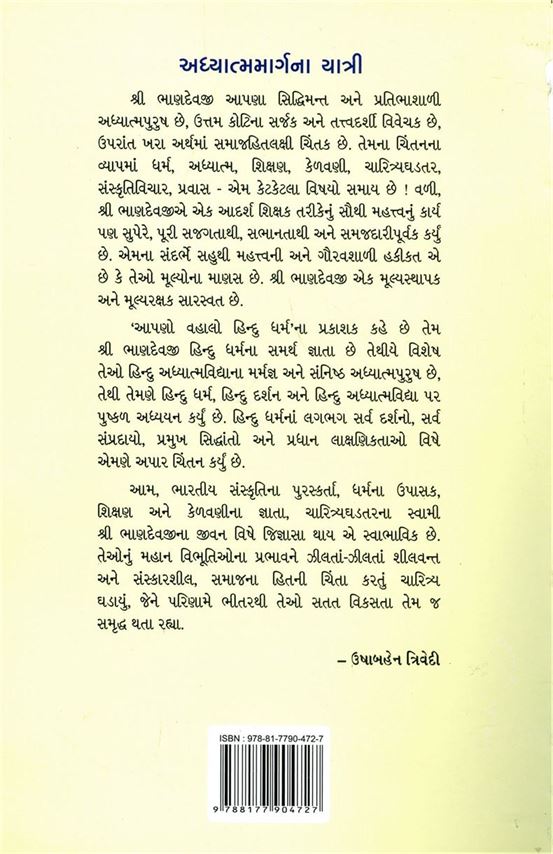 અધ્યાત્મમાર્ગના યાત્રી
શ્રી ભાણદેવજી આપણા સિદ્ધિમન્ત અને પ્રતિભાશાળી
અધ્યાત્મપુરુષ છે, ઉત્તમ કોટિના સર્જક અને તત્ત્વદર્શી વિવેચક છે,
ઉપરાંત ખરા અર્થમાં સમાજહિતલક્ષી ચિંતક છે. તેમના ચિંતનના
વ્યાપમાં ધર્મ, અધ્યાત્મ, શિક્ષણ, કેળવણી, ચારિત્ર્યઘડતર,
સંસ્કૃતિવિચાર, પ્રવાસ - એમ કેટકેટલા વિષયો સમાય છે ! વળી,
શ્રી ભાણદેવજીએ એક આદર્શ શિક્ષક તરીકેનું સૌથી મહત્ત્વનું કાર્ય
પણ સુપેરે, પૂરી સજગતાથી, સભાનતાથી અને સમજદારીપૂર્વક કર્યું
છે. એમના સંદર્ભે સહુથી મહત્ત્વની અને ગૌરવશાળી હકીકત એ
છે કે તેઓ મૂલ્યોના માણસ છે. શ્રી ભાણદેવજી એક મૂલ્યસ્થાપક
અને મૂલ્યરક્ષક સારસ્વત છે.
‘આપણો વહાલો હિન્દુ ધર્મ’ના પ્રકાશક કહે છે તેમ
શ્રી ભાણદેવજી હિન્દુ ધર્મના સમર્થ જ્ઞાતા છે તેથીયે વિશેષ
તેઓ હિન્દુ અધ્યાત્મવિદ્યાના મર્મજ્ઞ અને સંનિષ્ઠ અધ્યાત્મપુરુષ છે,
તેથી તેમણે હિન્દુ ધર્મ, હિન્દુ દર્શન અને હિન્દુ અધ્યાત્મવિદ્યા પર
પુષ્કળ અધ્યયન કર્યું છે. હિન્દુ ધર્મનાં લગભગ સર્વ દર્શનો, સર્વ
સંપ્રદાયો, પ્રમુખ સિદ્ધાંતો અને પ્રધાન લાક્ષણિકતાઓ વિષે
એમણે અપાર ચિંતન કર્યું છે.
આમ, ભારતીય સંસ્કૃતિના પુરસ્કર્તા, ધર્મના ઉપાસક,
શિક્ષણ અને કેળવણીના જ્ઞાતા, ચારિત્ર્યઘડતરના સ્વામી
શ્રી ભાણદેવજીના જીવન વિષે જિજ્ઞાસા થાય એ સ્વાભાવિક છે.
તેઓનું મહાન વિભૂતિઓના પ્રભાવને ઝીલતાં-ઝીલતાં શીલવન્ત
અને સંસ્કારશીલ, સમાજના હિતની ચિંતા કરતું ચારિત્ર્ય
ઘડાયું, જેને પરિણામે ભીતરથી તેઓ સતત વિકસતા તેમ જ
સમૃદ્ધ થતા રહ્યા.
– ઉષાબહેન ત્રિવેદી
ISBN : 978-81-7790-472-7
9 788177 904727